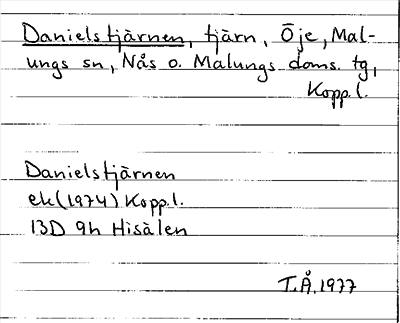 Danielstjärnen, tjärn, Öje, Mal-
ungs sn, Nås o. Malungs doms. tg,
Kopp.l.
Danielstjärnen
ek(1974) Kopp.l.
13D 9h Hisälen
T.Å.1977